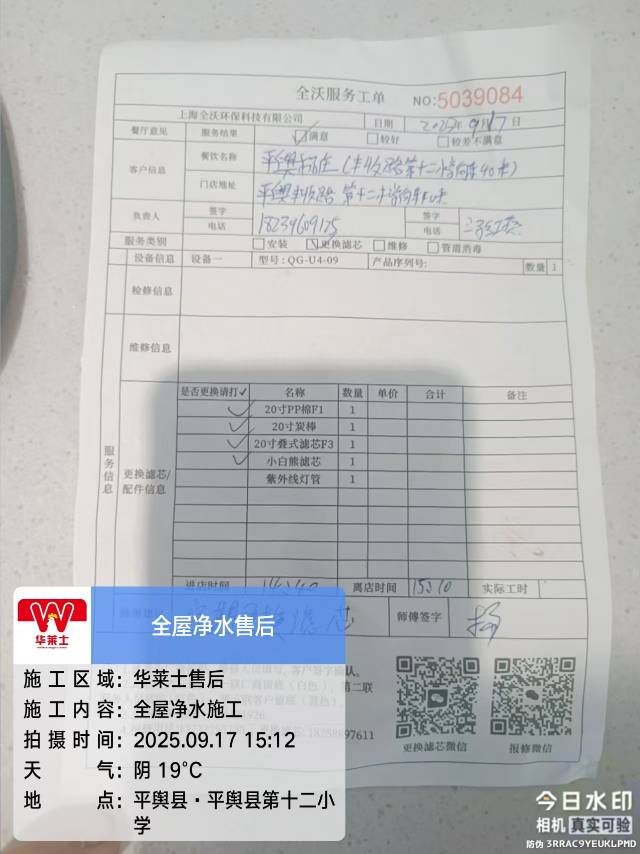 全沃服务工单 NO:5039084
上海全沃环保科技有限公司 日期 2025年9月17日
餐厅意见 服务结果 满意 较好 较差不满意
客户信息 餐饮名称
门店地址
负责人 签字 签字
电话 18239609175 电话
服务类别 安装 更换滤芯 维修 管道消毒
设备信息 设备一 型号: QG-U4-09 产品序列号: 数量 1
检修信息
维修信息
服务信息
更换滤芯/配件信息
是否更换请打✓ 名称 数量 单价 合计 备注
✓ 20寸PP棉F1 1
✓ 20寸炭棒 1
✓ 20寸叠式滤芯F3 1
✓ 小白熊滤芯 1
紫外线灯管 1
进店时间 14:40 离店时间 15:10 实际工时
滤芯 师傅签字 杨
客户签字确认。
(白色)，第二联
客户留底（蓝色）。
1926.
18258897611
更换滤芯微信 报修微信
华莱士
全屋净水售后
施工区域: 华莱士售后
施工内容: 全屋净水施工
拍摄时间: 2025.09.17 15:12
天气: 阴 19°C
地点: 平舆县·平舆县第十二小
学
今日水印
相机 真实可验
防伪 3RRAC9YEUKLPMD